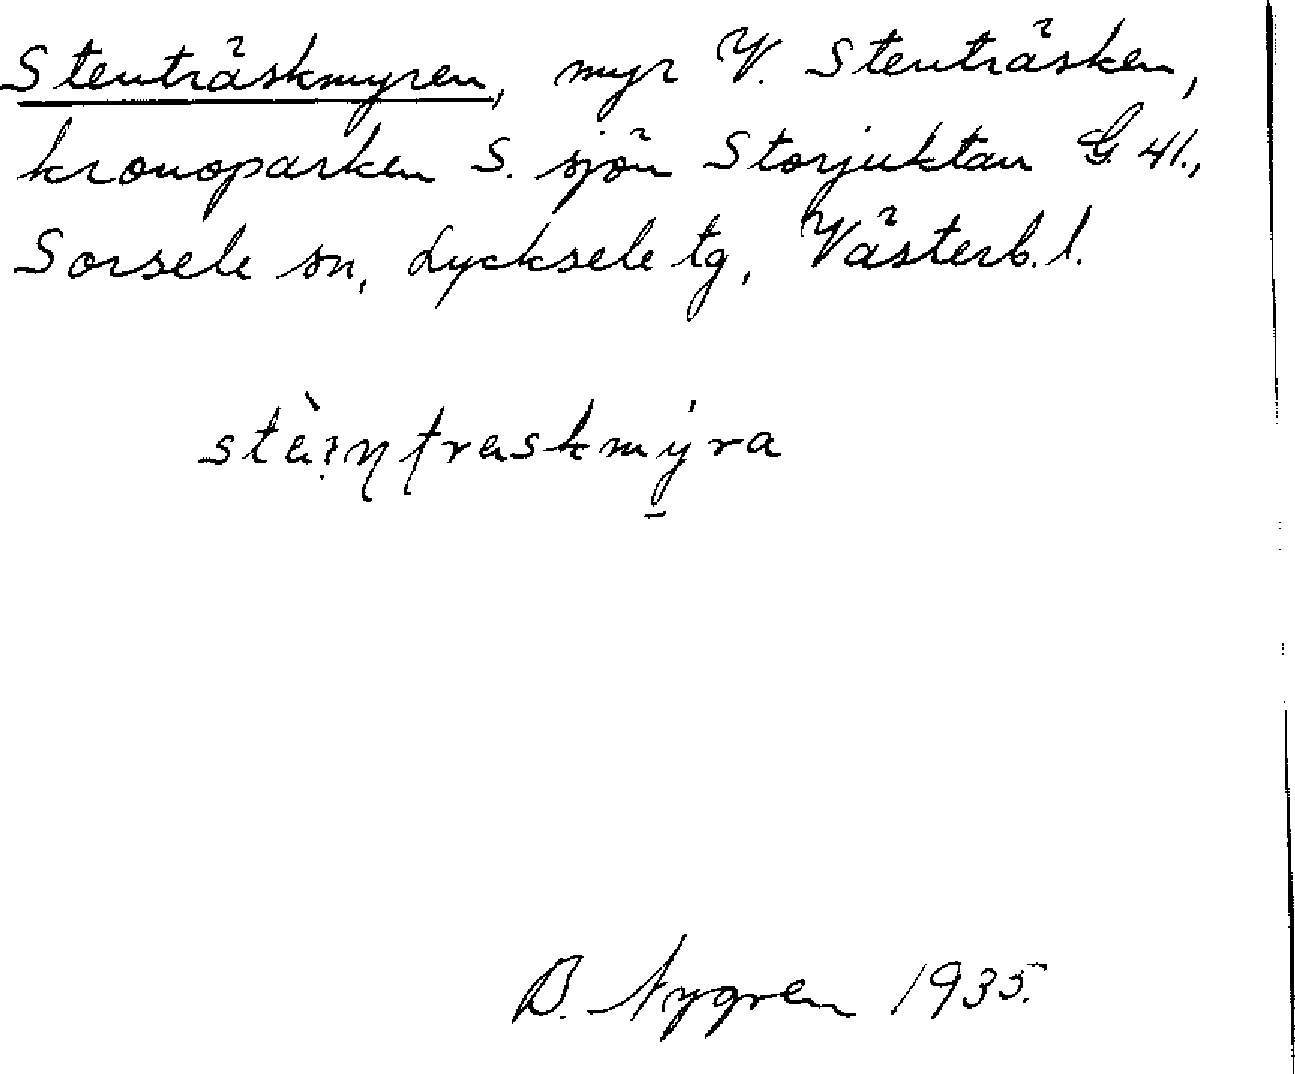 Stenträskmyren, myr V. Stenträsken,
kronoparken S. sjön Storjuktan G. 41.,
Sorsele sn, Lycksele tg, Västerb. l.
B. Nygren 1935.